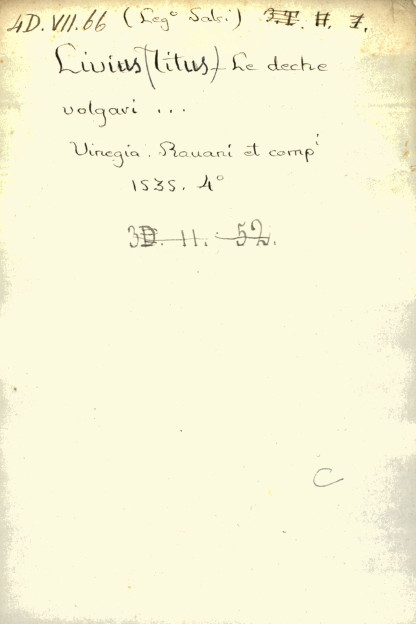 4D. VII. 66 (Leg° Salvi) 3.T. H. 7.
Livius (Titus) Le deche
volgari ...
Vinegia. Ravani et comp^i
1535. 4°
3D. 11. 52.
C